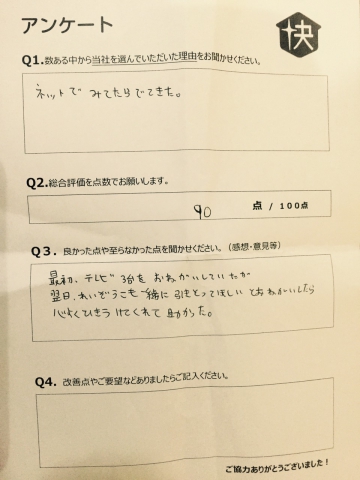 アンケート
快
Q1.数ある中から当社を選んでいただいた理由をお聞かせください。
ネットで みてたらでてきた。
Q2.総合評価を点数でお願いします。
90 点 / 100点
Q3. 良かった点や至らなかった点を聞かせください。（感想・意見等）
最初、テレビ 3台を おねがいしていたが
翌日、れいぞうこも一緒に引きとってほしい とおねがいしたら
心よくひきうけてくれて 助かった。
Q4. 改善点やご要望などありましたらご記入ください。
ご協力ありがとうございました！